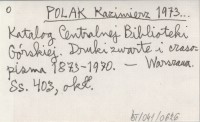 0
POLAK Kazimierz 1973...
Katalog Centralnej Biblioteki
Górskiej. Druki zwarte i czaso-
pisma 1873-1970. — Warszawa.
Ss. 403, okł.